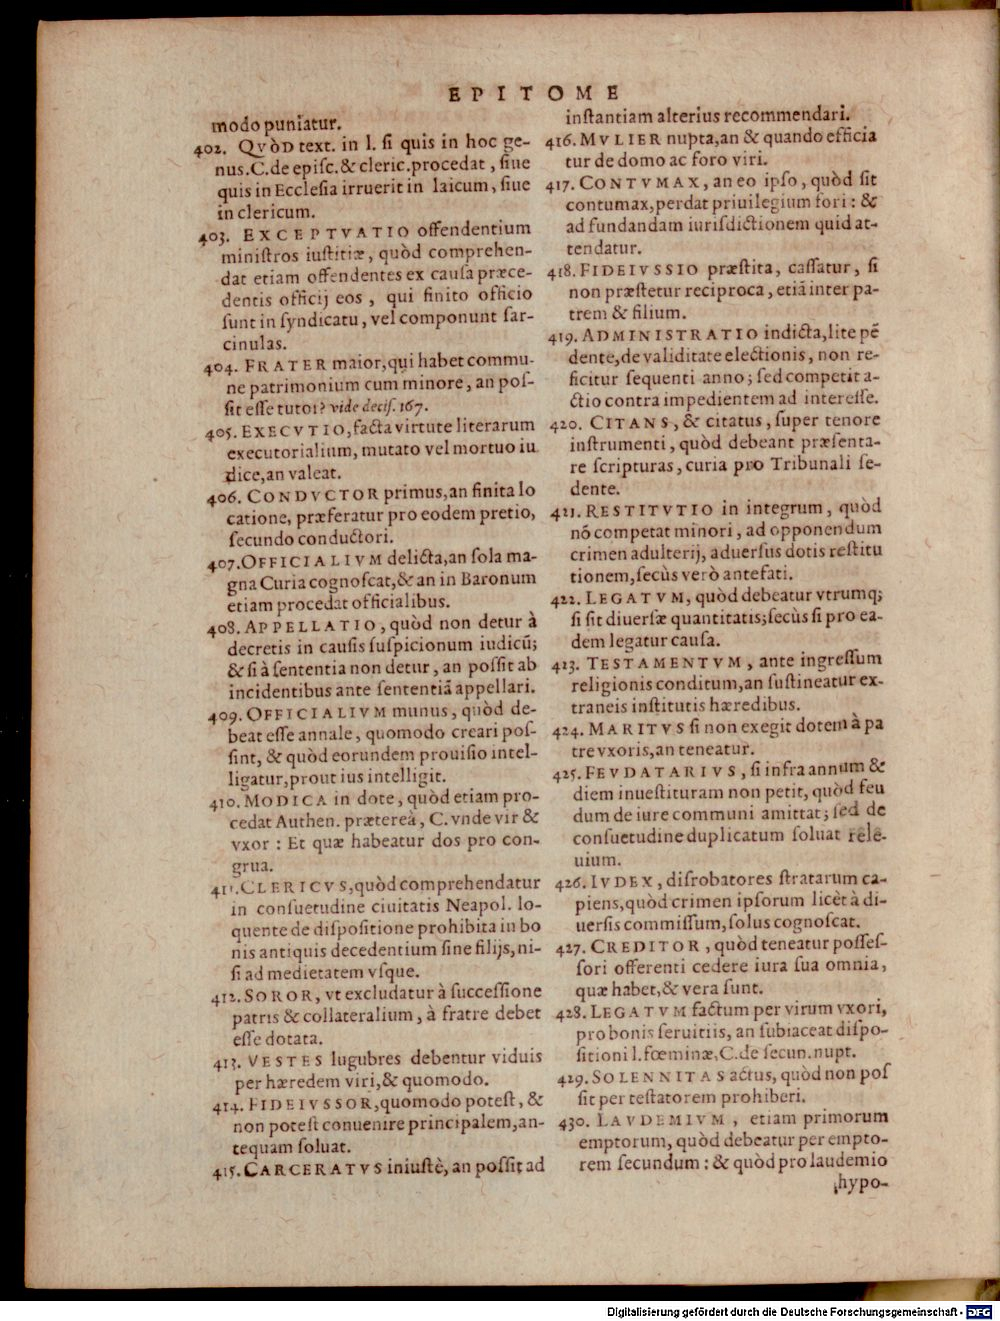 EPITOME
modo puniatur.
402. QVÒD text. in l. si quis in hoc ge-
nus.C.de episc.& cleric.procedat, siue
quis in Ecclesia irruerit in laicum, siue
in clericum.
403. EXCEPTVATIO offendentium
ministros iustitiæ, quòd comprehen-
dat etiam offendentes ex causa præce-
dentis officij eos, qui finito officio
sunt in syndicatu, vel componunt sar-
cinulas.
404. FRATER maior,qui habet commu-
ne patrimonium cum minore, an pos-
sit esse tutor? vide decis. 167.
405. EXECVTIO,facta virtute literarum
executorialium, mutato vel mortuo iu
dice,an valeat.
406. CONDVCTOR primus,an finita lo
catione, præferatur pro eodem pretio,
secundo conductori.
407.OFFICIALIVM delicta,an sola ma-
gna Curia cognoscat,& an in Baronum
etiam procedat officialibus.
408. APPELLATIO, quòd non detur à
decretis in causis suspicionum iudicũ;
& si à sententia non detur, an possit ab
incidentibus ante sententiã appellari.
409. OFFICIALIVM munus, quòd de-
beat esse annale, quomodo creari pos-
sint, & quòd eorundem prouisio intel-
ligatur,prout ius intelligit.
410. MODICA in dote, quòd etiam pro-
cedat Authen. prætereà, C. vnde vir &
vxor : Et quæ habeatur dos pro con-
grua.
411.CLERICVS,quòd comprehendatur
in consuetudine ciuitatis Neapol. lo-
quente de dispositione prohibita in bo
nis antiquis decedentium sine filijs, ni-
si ad medietatem vsque.
412. SOROR, vt excludatur à successione
patris & collateralium, à fratre debet
esse dotata.
413. VESTES lugubres debentur viduis
per hæredem viri,& quomodo.
414. FIDEIVSSOR,quomodo potest, &
non potest conuenire principalem,an-
tequam soluat.
415. CARCERATVS iniustè, an possit ad
instantiam alterius recommendari.
416. MVLIER nupta,an & quando efficia
tur de domo ac foro viri.
417. CONTVMAX, an eo ipso, quòd sit
contumax,perdat priuilegium fori : &
ad fundandam iurisdictionem quid at-
tendatur.
418. FIDEIVSSIO præstita, cassatur, si
non præstetur reciproca, etiã inter pa-
trem & filium.
419. ADMINISTRATIO indicta,lite pẽ
dente,de validitate electionis, non re-
ficitur sequenti anno; sed competit a-
ctio contra impedientem ad interesse.
420. CITANS, & citatus, super tenore
instrumenti, quòd debeant præsenta-
re scripturas, curia pro Tribunali se-
dente.
421. RESTITVTIO in integrum, quòd
nõ competat minori, ad opponendum
crimen adulterij, aduersus dotis restitu
tionem,secùs verò antefati.
422. LEGATVM, quòd debeatur vtrumq;
si sit diuersæ quantitatis;secùs si pro ea-
dem legatur causa.
423. TESTAMENTVM, ante ingressum
religionis conditum,an sustineatur ex-
traneis institutis hæredibus.
424. MARITVS si non exegit dotem à pa
tre vxoris,an teneatur.
425. FEVDATARIVS, si infra annum &
diem inuestituram non petit, quòd feu
dum de iure communi amittat; sed de
consuetudine duplicatum soluat rele-
uium.
426. IVDEX, disrobatores stratarum ca-
piens,quòd crimen ipsorum licèt à di-
uersis commissum, solus cognoscat.
427. CREDITOR, quòd teneatur posses-
sori offerenti cedere iura sua omnia,
quæ habet,& vera sunt.
428. LEGATVM factum per virum vxori,
pro bonis seruitiis, an subiaceat dispo-
sitioni l.fœminæ,C.de secun.nupt.
429. SOLENNITAS actus, quòd non pos
sit per testatorem prohiberi.
430. LAVDEMIVM, etiam primorum
emptorum, quòd debeatur per empto-
rem secundum : & quòd pro laudemio
hypo-
Digitalisierung gefördert durch die Deutsche Forschungsgemeinschaft - DFG